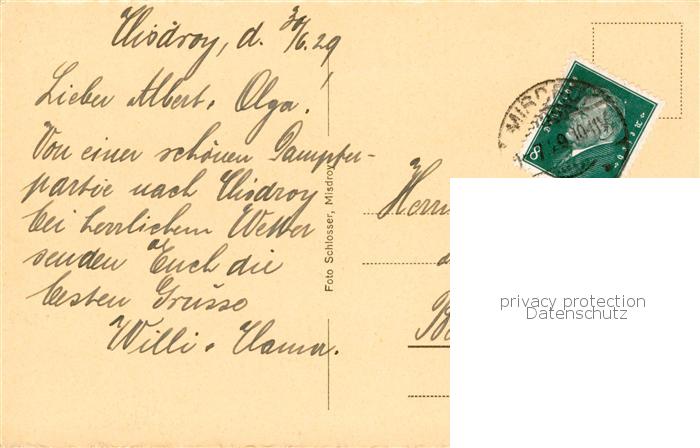 Misdroy, d. 30/6.29
Lieber Albert u. Olga!
Von einer schönen Dampfer-
partie nach Misdroy
bei herrlichem Wetter
senden Euch die
besten Grüsse
Willi u.
Foto Schlosser, Misdroy
Herrn
8
10-11
privacy protection
Datenschutz